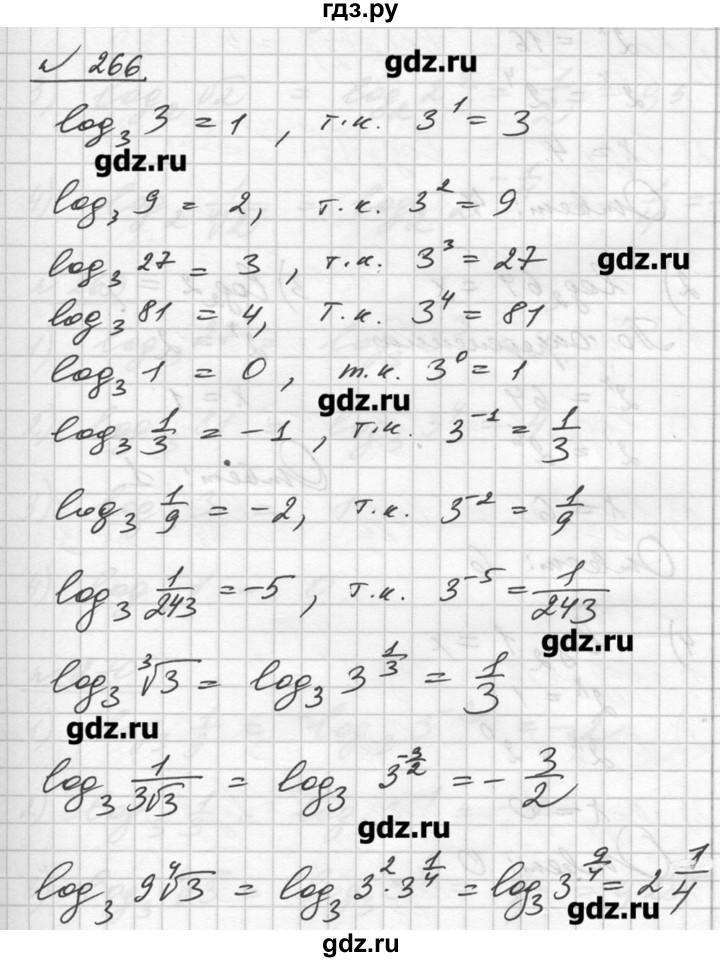 гдз.ру
№ 266
gdz.ru
log₃ 3 = 1, т.к. 3¹ = 3
gdz.ru
log₃ 9 = 2, т.к. 3² = 9
log₃ 27 = 3, т.к. 3³ = 27
gdz.ru
log₃ 81 = 4, т.к. 3⁴ = 81
log₃ 1 = 0, т.к. 3⁰ = 1
gdz.ru
log₃ 1/3 = -1, т.к. 3⁻¹ = 1/3
log₃ 1/9 = -2, т.к. 3⁻² = 1/9
log₃ 1/243 = -5, т.к. 3⁻⁵ = 1/243
gdz.ru
log₃ ∛3 = log₃ 3^(1/3) = 1/3
gdz.ru
log₃ 1/(3√3) = log₃ 3^(-3/2) = -3/2
gdz.ru
log₃ 9∜3 = log₃ 3²·3^(1/4) = log₃ 3^(9/4) = 2 1/4
gdz.ru
gdz.ru